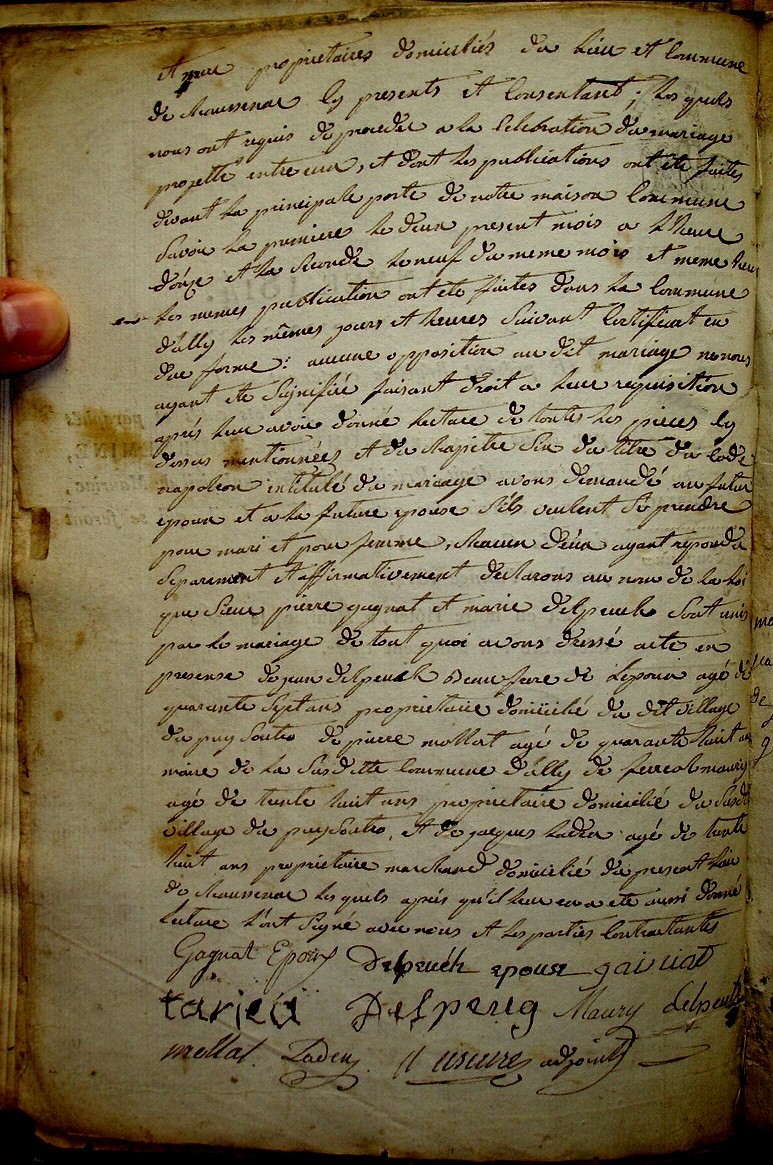 et mere propriétaires domiciliés du lieu et Commune
de Maussenac Cy presents et Consentant; Les quels
nous ont requis de proceder a la Celebration du mariage
projetté entre eux, et dont Les publications ont été faites
devant La principale porte de notre maison Commune
Savoir La premiere Le deux present mois a L'heure
d'onze et La Seconde Le neuf du meme mois et meme heure
Les memes publication ont ete faites dans La Commune
d'ally Les mêmes jours et heures Suivant Certificat en
due forme: aucune opposition au dit mariage ne nous
ayant ete Signifié faisant droit a Leur requisition
aprés Leur avoir donné Lecture de toutes Les pieces Cy
dessus mentionnées et du Chapitre Six du titre du Code
napoleon intitulé du mariage avons demandé au futur
epoux et a La future epouse S'ils veulent Se prendre
pour mari et pour femme, Chacun d'eux ayant repondu
Separement et affirmativement declarons au nom de La Loi
que Sieur pierre gagnat et marie delpeuch Sont unis
par Le mariage de tout quoi avons dressé acte en
presense de jean delpeuch Beaufrere de L'epoux agé de
quarante Sept ans propriétaire domicilié du dit village
du puy Soutro de pierre mollat agé de quarante huit ans
maire de La Susditte Commune d'ally de maury
agé de trente huit ans propriétaire domicilié du Susdit
village du puy Soutro, et de jacques Ladeu agé de trente
huit ans propriétaire marchand domicilié du present Lieu
de Maussenac Les quels aprés qu'il Leur en a ete aussi donné
Lecture L'ont Signé avec nous et Les parties Contractantes
Gagnat Epoux Delpeuch epouse gainiat
tarieu Delpeug Maury delpeuch
mollat. Ladeu adjoint